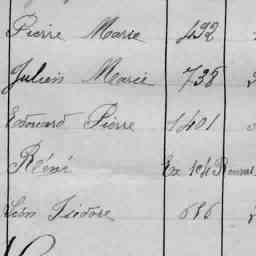 Pierre Marie 492
Julien Marie 738
Edouard Pierre 1401
Réné Ex 104 Rennes
Léon Isidore 686